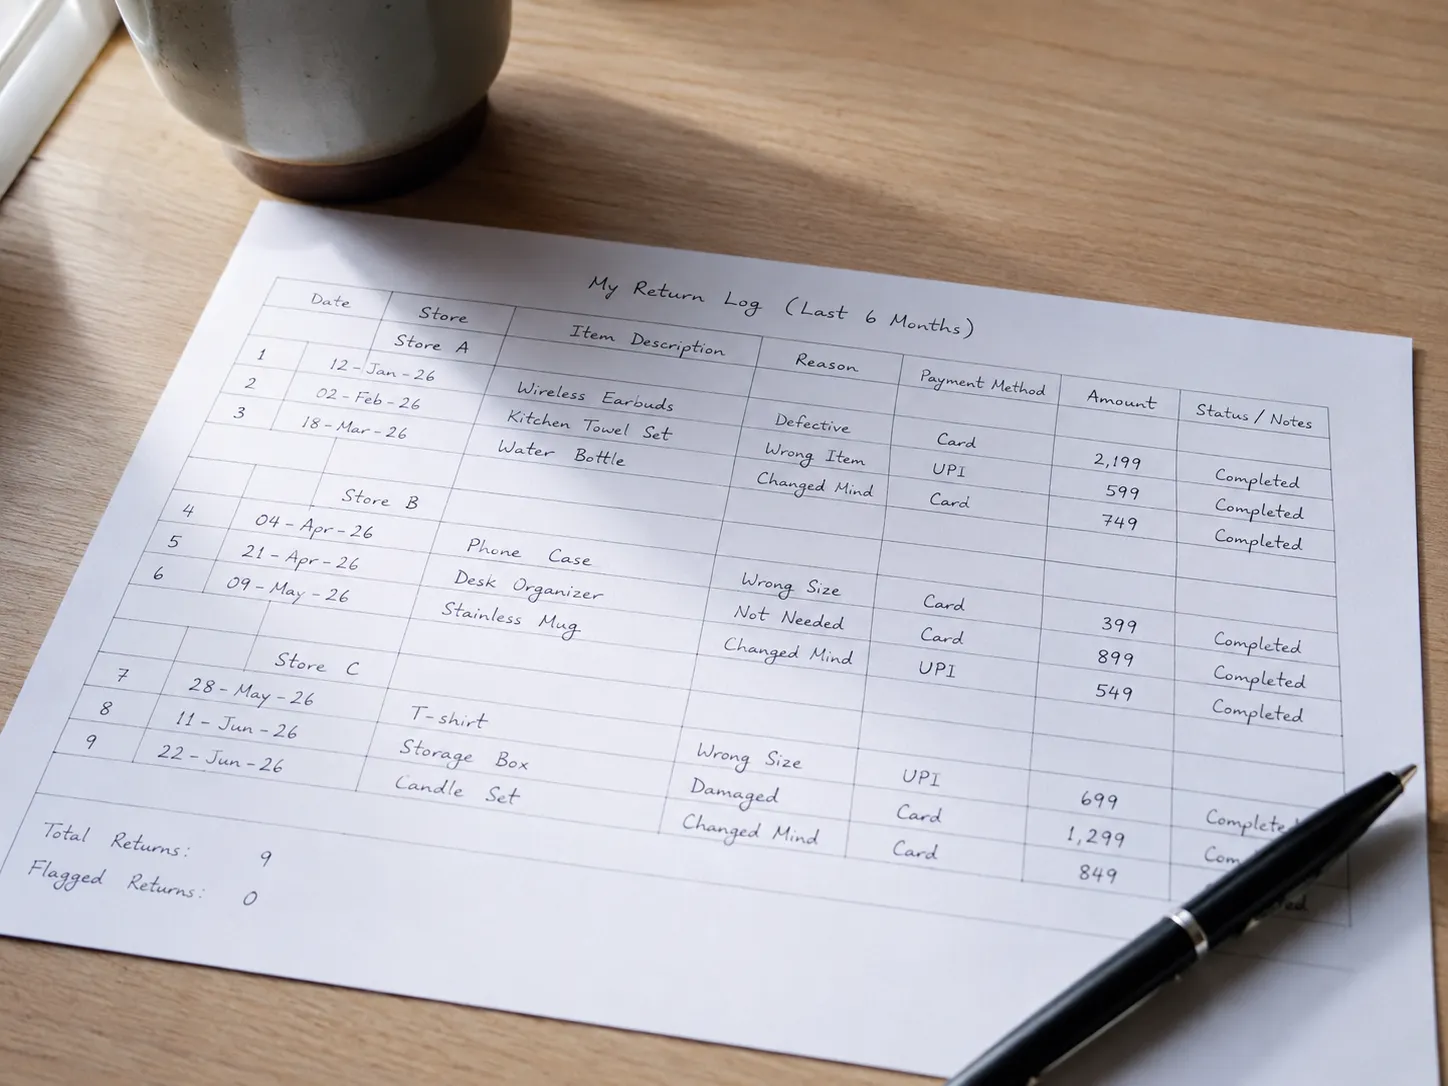 My Return Log (Last 6 Months)
Date Store Item Description Reason Payment Method Amount Status / Notes
Store A
1 12-Jan-26 Wireless Earbuds Defective Card 2,199 Completed
2 02-Feb-26 Kitchen Towel Set Wrong Item UPI 599 Completed
3 18-Mar-26 Water Bottle Changed Mind Card 749 Completed
Store B
4 04-Apr-26 Phone Case Wrong Size Card 399 Completed
5 21-Apr-26 Desk Organizer Not Needed Card 899 Completed
6 09-May-26 Stainless Mug Changed Mind UPI 549 Completed
Store C
7 28-May-26 T-shirt Wrong Size UPI 699 Complete
8 11-Jun-26 Storage Box Damaged Card 1,299 Com
9 22-Jun-26 Candle Set Changed Mind Card 849
Total Returns: 9
Flagged Returns: 0